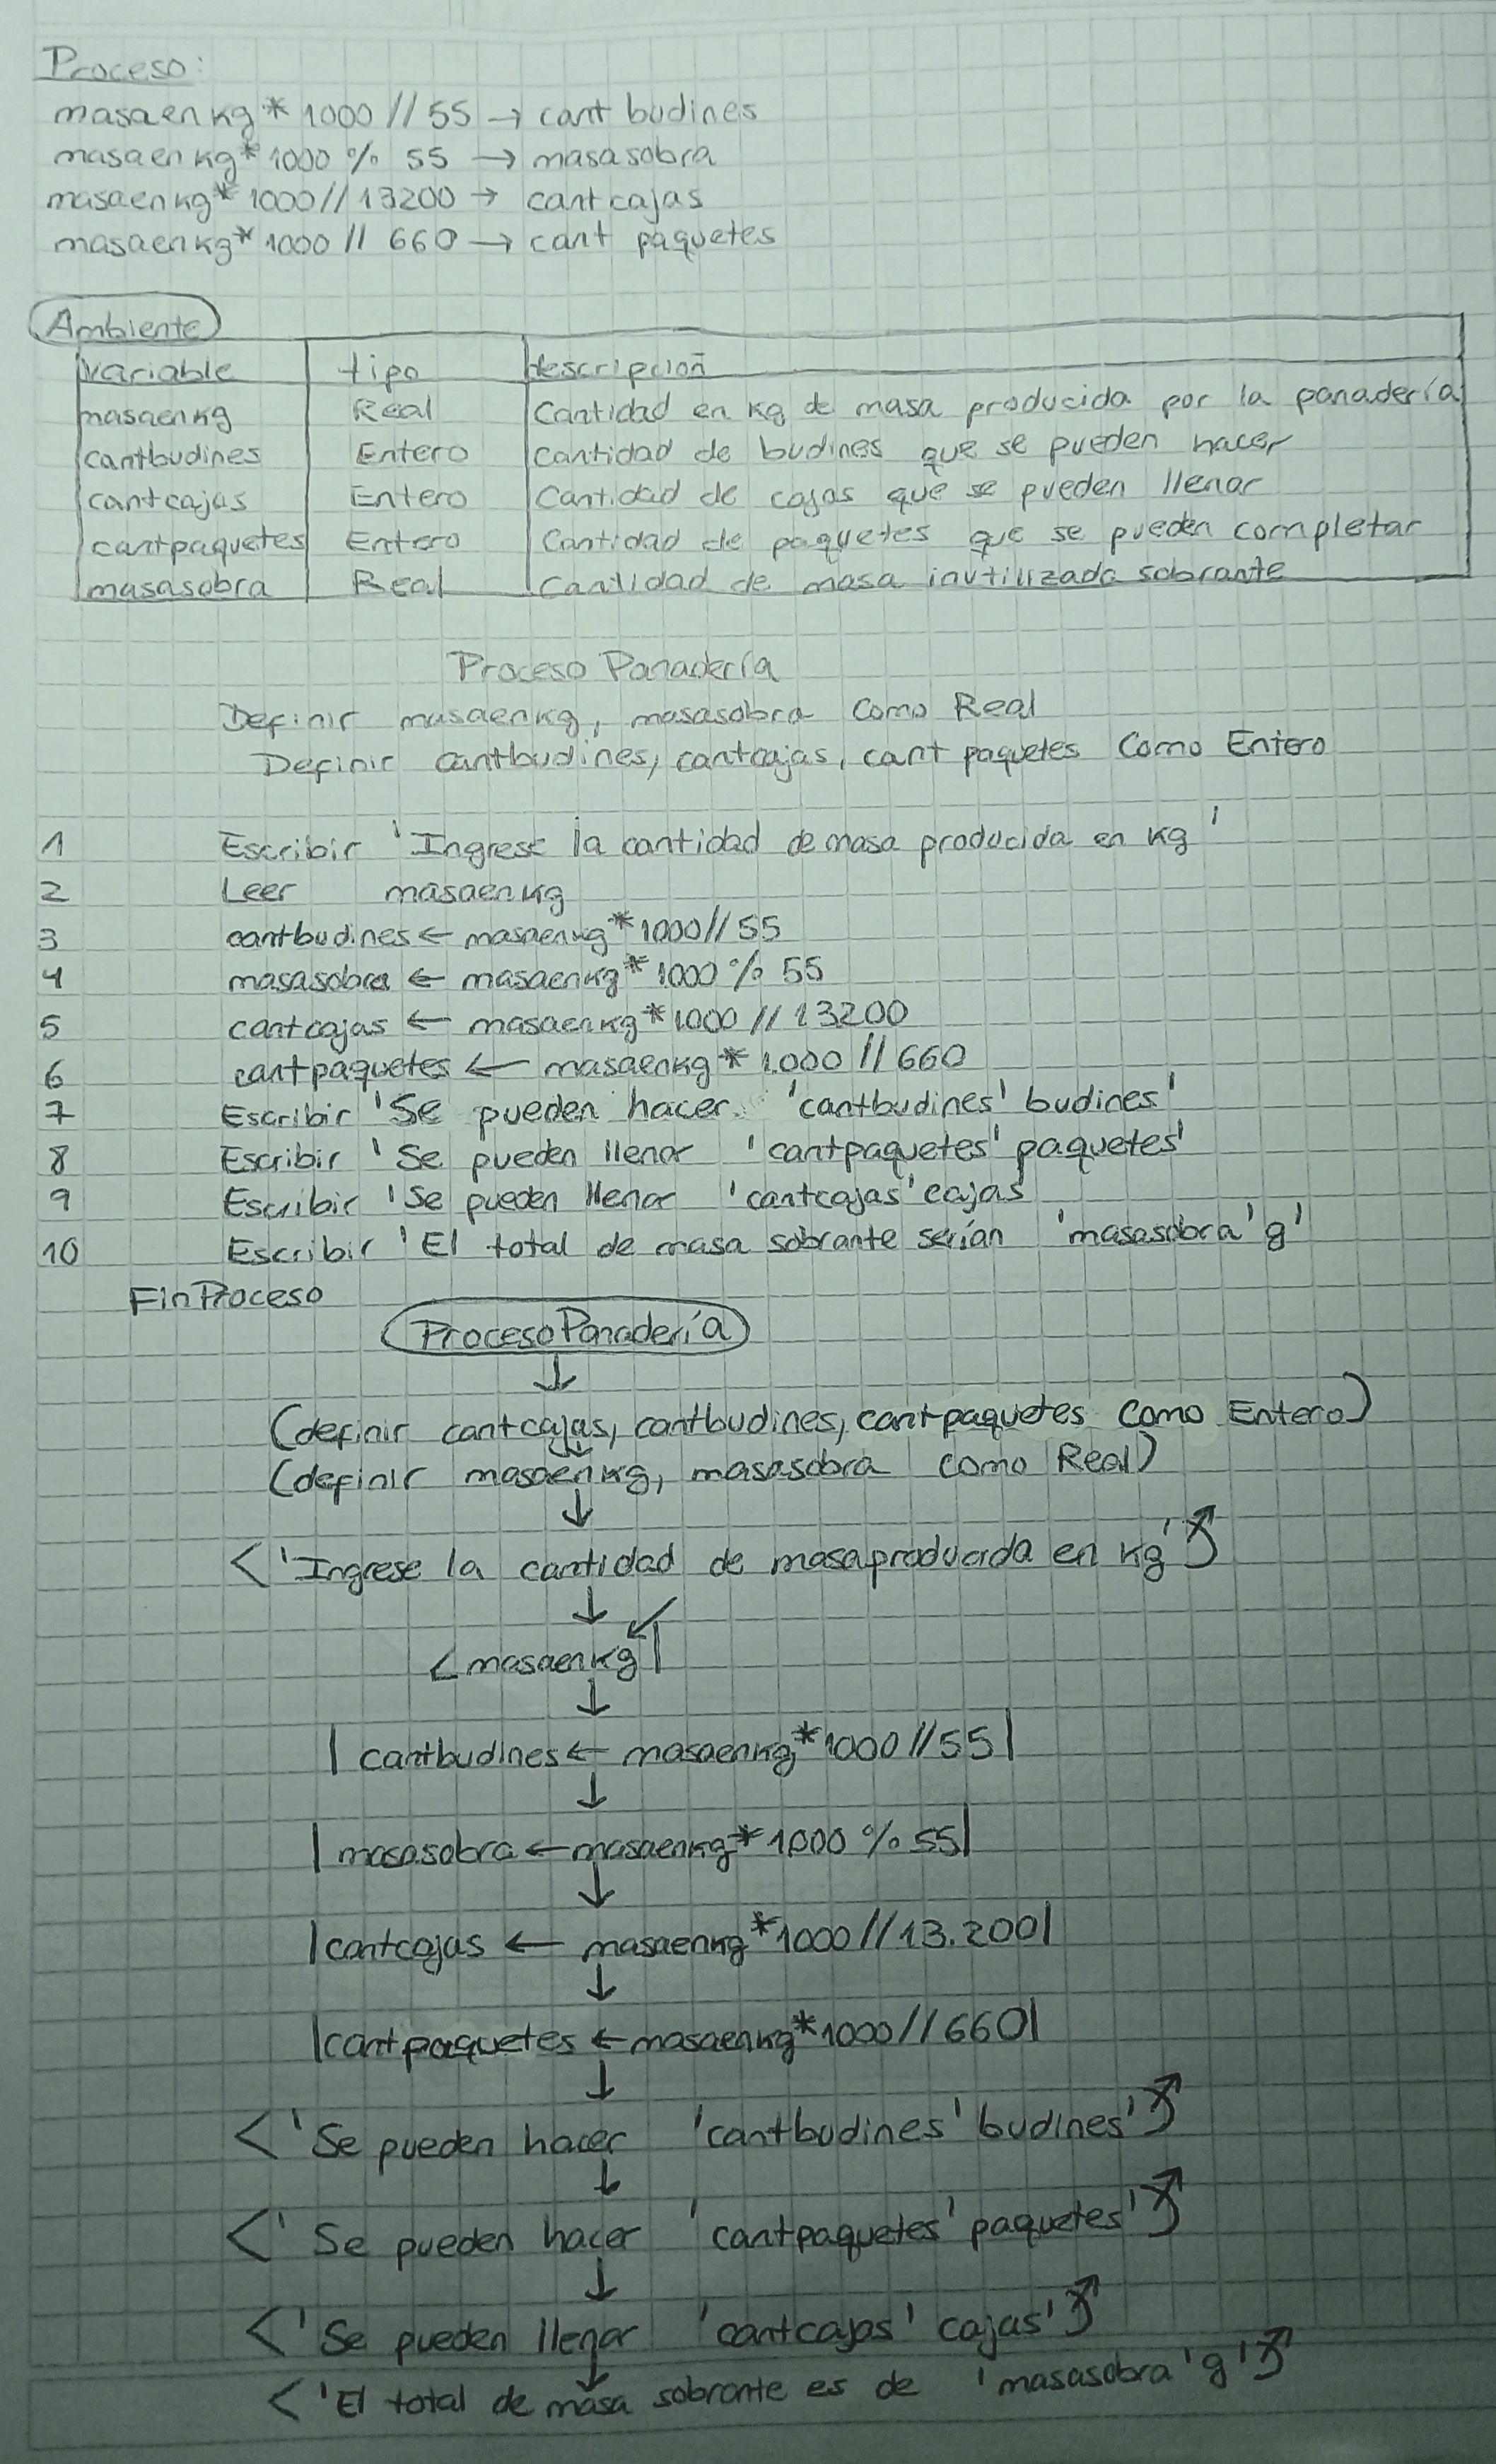 Proceso:
masaenkg * 1000 // 55 → cant budines
masaenkg * 1000 % 55 → masasobra
masaenkg * 1000 // 13200 → cantcajas
masaenkg * 1000 // 660 → cant paquetes
Ambiente
variable tipo descripción
masaenkg Real Cantidad en kg de masa producida por la panadería
cantbudines Entero Cantidad de budines que se pueden hacer
cantcajas Entero Cantidad de cajas que se pueden llenar
cantpaquetes Entero Cantidad de paquetes que se pueden completar
masasobra Real Cantidad de masa inutilizada sobrante
Proceso Panadería
Definir masaenkg, masasobra Como Real
Definir cantbudines, cantcajas, cant paquetes Como Entero
1 Escribir 'Ingrese la cantidad de masa producida en kg'
2 Leer masaenkg
3 cantbudines ← masaenkg * 1000 // 55
4 masasobra ← masaenkg * 1000 % 55
5 cantcajas ← masaenkg * 1000 // 13200
6 cantpaquetes ← masaenkg * 1.000 // 660
7 Escribir 'Se pueden hacer 'cantbudines' budines'
8 Escribir 'Se pueden llenar 'cantpaquetes' paquetes'
9 Escribir 'Se pueden llenar 'cantcajas' cajas
10 Escribir 'El total de masa sobrante serían 'masasobra' g'
FinProceso
Proceso Panadería
↓
(definir cantcajas, cantbudines, cantpaquetes Como Entero)
↓
(definir masaenkg, masasobra como Real)
↓
< 'Ingrese la cantidad de masa producida en kg' ↗
↓
< masaenkg | ↙
↓
| cantbudines ← masaenkg * 1000 // 55 |
↓
| masasobra ← masaenkg * 1000 % 55 |
↓
| cantcajas ← masaenkg * 1000 // 13.200 |
↓
| cantpaquetes ← masaenkg * 1000 // 660 |
↓
< 'Se pueden hacer 'cantbudines' budines' ↗
↓
< 'Se pueden hacer 'cantpaquetes' paquetes' ↗
↓
< 'Se pueden llenar 'cantcajas' cajas' ↗
↓
< 'El total de masa sobrante es de 'masasobra' g' ↗